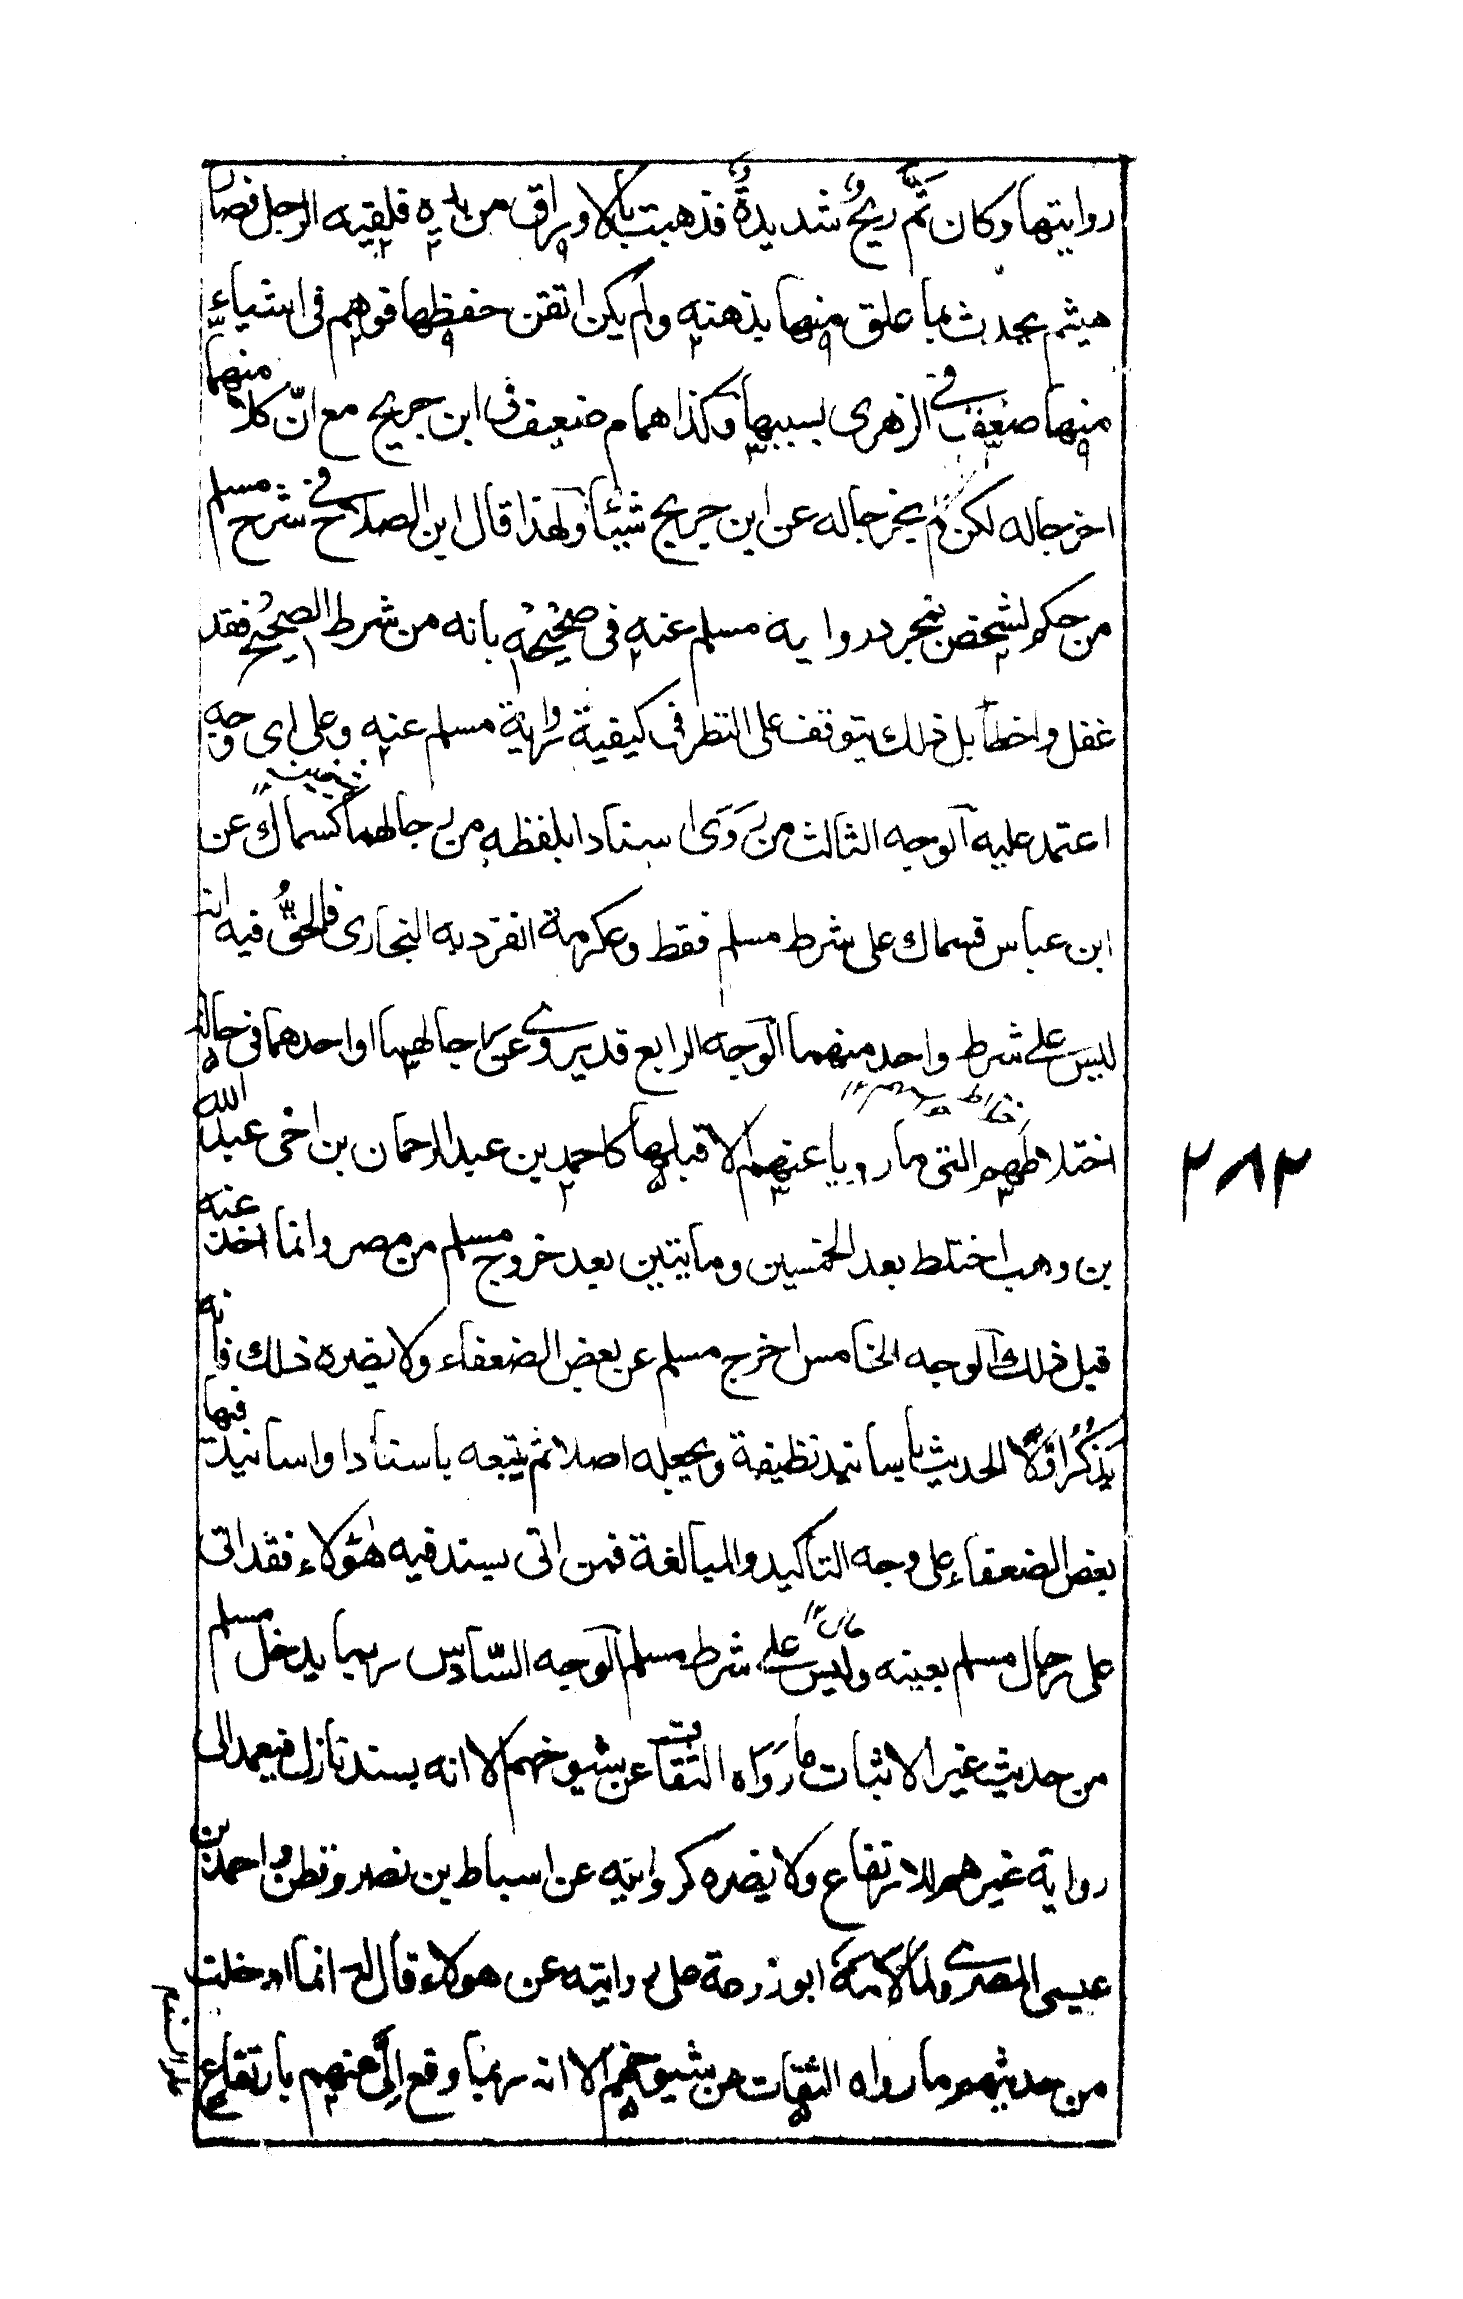 روايتها وكان ثَمَّ ريحٌ شديدةٌ فذهبت بالاوراق من يده فلقيه الرجل فصار
هيثم يحدث بما علق منها بذهنه ولم يكن اتقن حفظها فوهم فى اشياء
منها ضعف فى الزهرى بسببها وكذا همام ضعيف فى ابن جريج مع انّ كلا منهما
اخرجاله لكن لم يخرجاله عن ابن جريج شيئا ولهذا قال ابن الصلاح فى شرح مسلم
من حكم لشخص بمجرد رواية مسلم عنه فى صحيحه بانه من شرط الصحيح فقد
غفل واخطأ بل ذلك يتوقف على النظر فى كيفية رواية مسلم عنه وعلى اى وجه
اعتمد عليه الوجه الثالث من رَوَى اسنادا بلفظه من رجالهما كسماك عن
ابن عباس فسماك على شرط مسلم فقط وعكرمة انفرد به البخارى فالحقُّ فيه انه
ليس على شرط واحد منهما الوجه الرابع قد يروى عن رجالهما او احدهما فى حالة
اختلاطهم التى ما رويا عنهم الا قبلها كاحمد بن عبد الرحمان بن اخى عبد الله
بن وهب اختلط بعد الخمسين ومايتين بعد خروج مسلم من مصر وانما اخذ عنه
قبل ذلك الوجه الخامس اخرج مسلم عن بعض الضعفاء ولا يضره ذلك فانه
يَذْكُرُ اوّلا الحديث باسانيد نظيفة ويجعله اصلا ثم يتبعه باسناد او اسانيد فيها
بعض الضعفاء على وجه التأكيد والمبالغة فمن اتى بسند فيه هؤلاء فقد اتى
على رجال مسلم بعينه وليس على شرط مسلم الوجه السّادس ربما يدخل مسلم
من حديث غير الاثبات ما رَوَاه الثقات عن شيوخهم الا انه بسند نازل فيعمد الى
رواية غيرهم للارتفاع ولا يضره كروايته عن اسباط بن نصر وقطن واحمد بن
عيسى المصرى ولما لامه ابو زرعة على روايته عن هولاء قال له انما ادخلت
من حديثهم ما رواه الثقات عن شيوخهم الا انه ربما وقع الىّ عنهم بارتفاع
٢٨٢